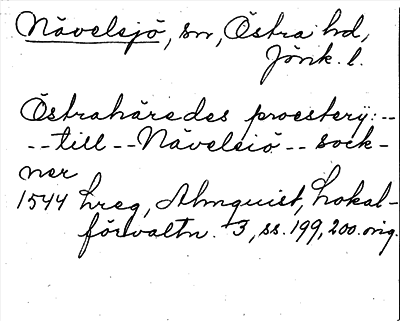 Nävelsjö, sn, Östra hd,
Jönk. l.
Östrahäredes proestery: --
-- till -- Nävelsiö -- sock-
ner
1544 hreg, Almquist, Lokal-
förvaltn. 3, ss. 199, 200. orig.